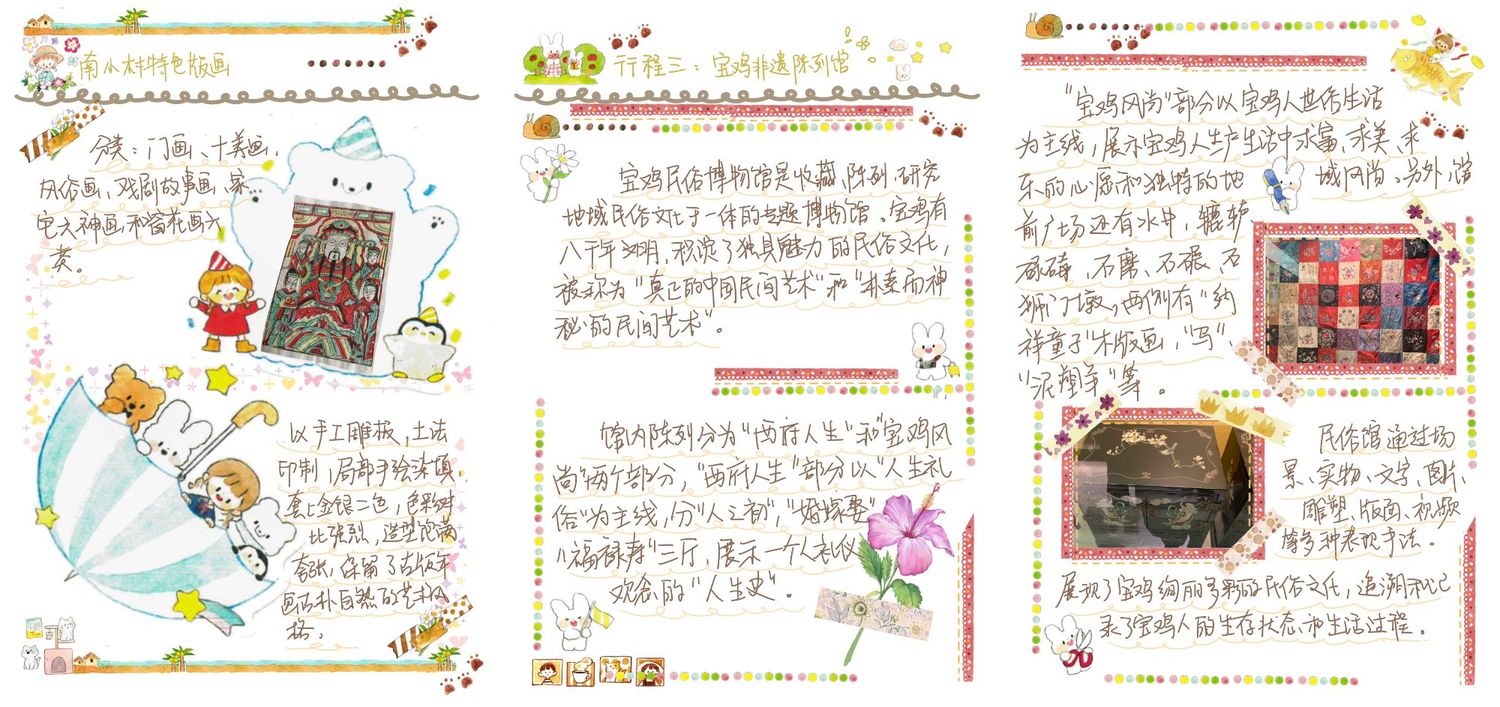 南小村特色版画
分类：门画、十美画、
风俗画、戏剧故事画、家
宅六神画和窗花画六
类。
以手工雕板，土法
印制，局部手绘染填
套上金银二色，色彩对
比强烈，造型饱满
夸张，保留了古版年
画古朴自然的艺术风
格。
行程三：宝鸡非遗陈列馆
宝鸡民俗博物馆是收藏、陈列、研究
地域民俗文化于一体的专题博物馆。宝鸡有
八千年文明，积淀了独具魅力的民俗文化，
被称为“真正的中国民间艺术”和“朴素而神
秘的民间艺术”。
馆内陈列分为“西府人生”和“宝鸡风
尚”两个部分，“西府人生”部分以“人生礼
俗”为主线，分“人之初”，“婚嫁娶”
“福禄寿”三厅，展示一个人礼仪
观念的“人生史”。
“宝鸡风尚”部分以宝鸡人世俗生活
为主线，展示宝鸡人生产生活中求富、求美、求
乐的心愿和独特的地
域风尚。另外，馆
前广场还有水井，辘轳
石磨、石碾、石
狮门墩，两侧有“纳
祥童子”木版画，“马”，
“泥塑羊”等。
民俗馆通过场
景、实物、文字、图片、
雕塑、版面、视频
等多种表现手法。
展现了宝鸡绚丽多彩的民俗文化，追溯和记
录了宝鸡人的生存状态和生活过程。